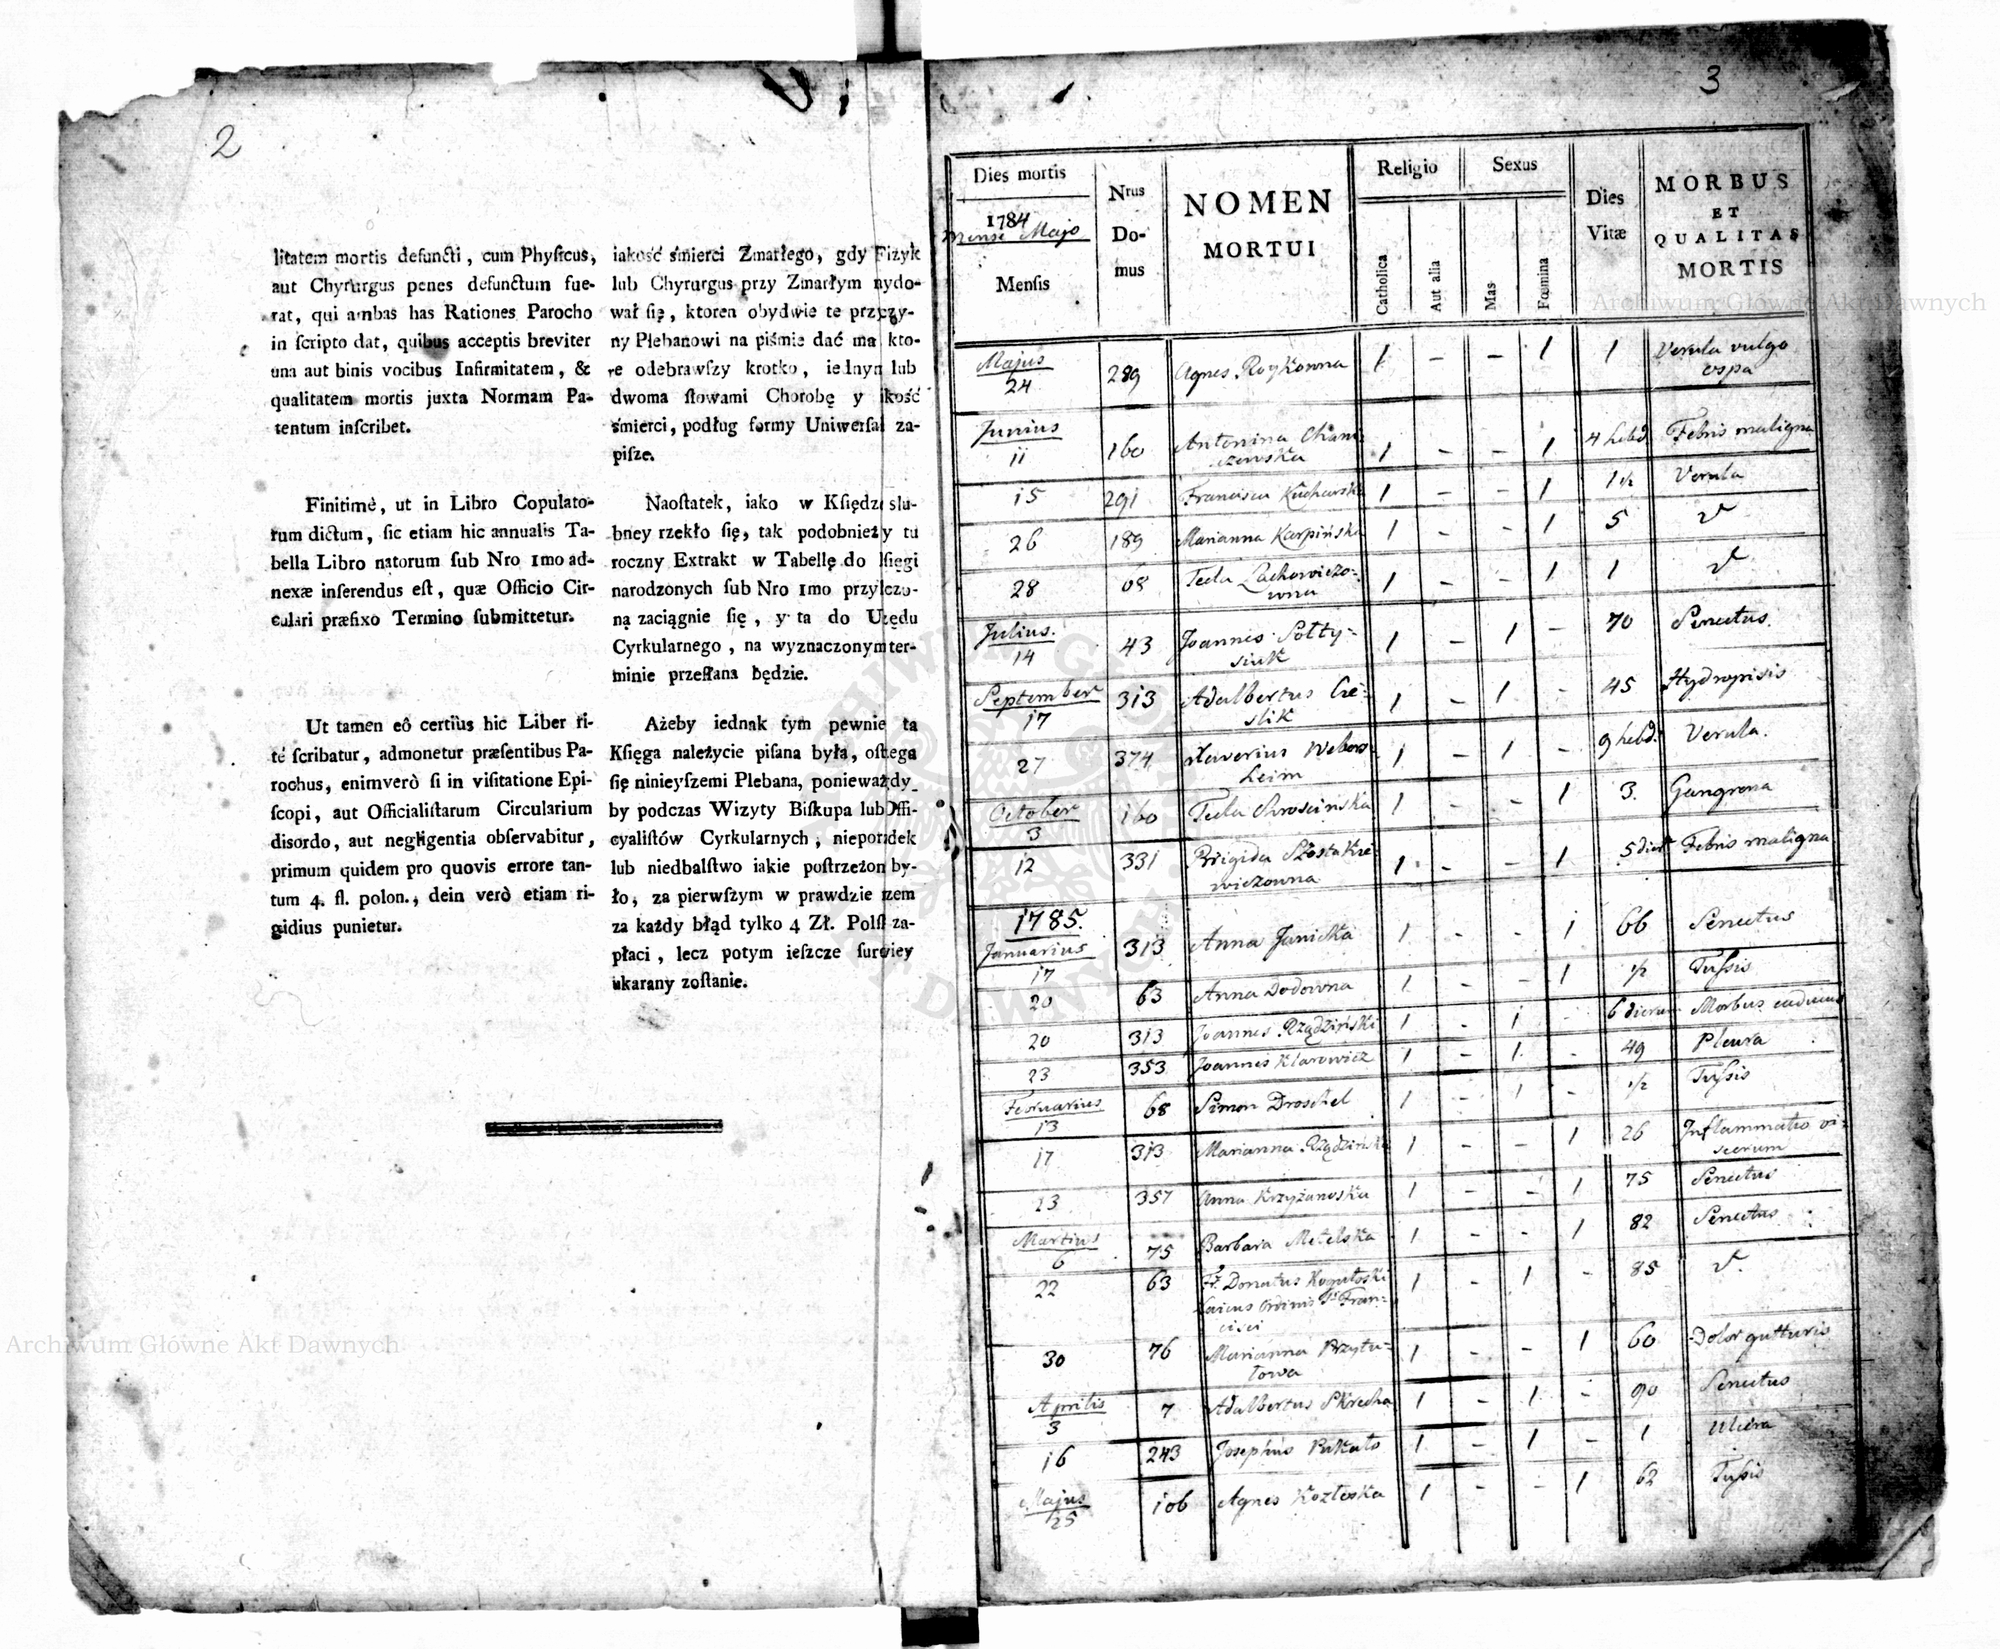 2
litatem mortis defuncti, cum Physicus,
aut Chyrurgus penes defunctum fue-
rat, qui ambas has Rationes Parocho
in scripto dat, quibus acceptis breviter
una aut binis vocibus Infirmitatem, &
qualitatem mortis juxta Normam Pa-
tentum inscribet.
Finitimè, ut in Libro Copulato-
rum dictum, sic etiam hic annualis Ta-
bella Libro natorum sub Nro 1mo ad-
nexæ inserendus est, quæ Officio Cir-
culari præfixo Termino submittetur.
Ut tamen eô certiùs hic Liber ri-
té scribatur, admonetur præsentibus Pa-
rochus, enimverò si in visitatione Epi-
scopi, aut Officialistarum Circularium
disordo, aut negligentia observabitur,
primum quidem pro quovis errore tan-
tum 4. fl. polon., dein verò etiam ri-
gidius punietur.
iakość śmierci Zmarłego, gdy Fizyk
lub Chyrurgus przy Zmarłym nydo-
wał się, ktoren obydwie te przyczy-
ny Plebanowi na piśmie dać ma kto-
re odebrawszy krotko, iednym lub
dwoma słowami Chorobę y ikość
śmierci, podług formy Uniwersał za-
pisze.
Naostatek, iako w Księdze slu-
bney rzekło się, tak podobnież y tu
roczny Extrakt w Tabellę do księgi
narodzonych sub Nro 1mo przyłczo-
ną zaciągnie się, y ta do Uzędu
Cyrkularnego, na wyznaczonym ter-
minie przesłana będzie.
Ażeby iednak tym pewnie ta
Księga należycie pisana była, ostega
się ninieyszemi Plebana, ponieważdy
by podczas Wizyty Biskupa lub Offi-
cyalistów Cyrkularnych, nieporządek
lub niedbalstwo iakie postrzeżon by-
ło, za pierwszym w prawdzie razem
za każdy błąd tylko 4 Zł. Polsk za-
płaci, lecz potym ieszcze surowiey
ukarany zostanie.
3
Dies mortis
1784
Mense Majo
Mensis
Nrus Do-mus
NOMEN MORTUI
Religio
Catholica
Aut alia
Sexus
Mas
Fœmina
Dies Vitæ
MORBUS ET QUALITAS MORTIS
Majus
24 289 Agnes Roykowna 1 – – 1 1 Verula vulgo ospa
Junius
11 160 Antonina 1 – – 1 4 hebd Febris maligna
15 291 Francisca Kucharska 1 – – 1 1½ Verula
26 189 Marianna Karpińska 1 – – 1 5
28 68 Tecla Lachowiczo-wna 1 – – 1 1
Julius.
14 43 Joannes Sołty-siuk 1 – 1 – 70 Senectus.
September
17 313 Adalbertus Cie-slik 1 – 1 – 45 Hydropisis
27 374 1 – 1 – 9 hebd. Verula.
October
3 160 Tecla 1 – – 1 3. Gangrena
12 331 Brigida Szostakie-wiczowna 1 – – 1 5 dier Febris maligna
1785.
Januarius
17 313 Anna Janicka 1 – – 1 66 Senectus
20 63 Anna Dodowna 1 – – 1 ½ Tussis
20 313 Joannes Rządziński 1 – 1 – 6 dierum Morbus caducus
23 353 Joannes Klarowicz 1 – 1 – 49 Pleura
Februarius
13 68 Simon Droschel 1 – 1 – ½ Tussis
17 313 Marianna Rządzińska 1 – – 1 26 Inflammatio vi-scerum
23 357 Anna Krzyżanoska 1 – – 1 75 Senectus
Martius
6 75 Barbara Metelska 1 – – 1 82 Senectus
22 63 Fr. Donatus Laicus Ordinis Sti Fran-cisci 1 – 1 – 85
30 76 Marianna Przytu-łowa 1 – – 1 60 Dolor gutturis
Aprilis
3 7 Adalbertus Skrecha 1 – 1 – 90 Senectus
16 243 Josephus Pukało 1 – 1 – 1 Ulcera
Majus
25 106 Agnes Kozłoska 1 – – 1 62 Tussis
Archiwum Główne Akt Dawnych
Archiwum Główne Akt Dawnych
ARCHIWUM GŁÓWNE AKT DAWNYCH